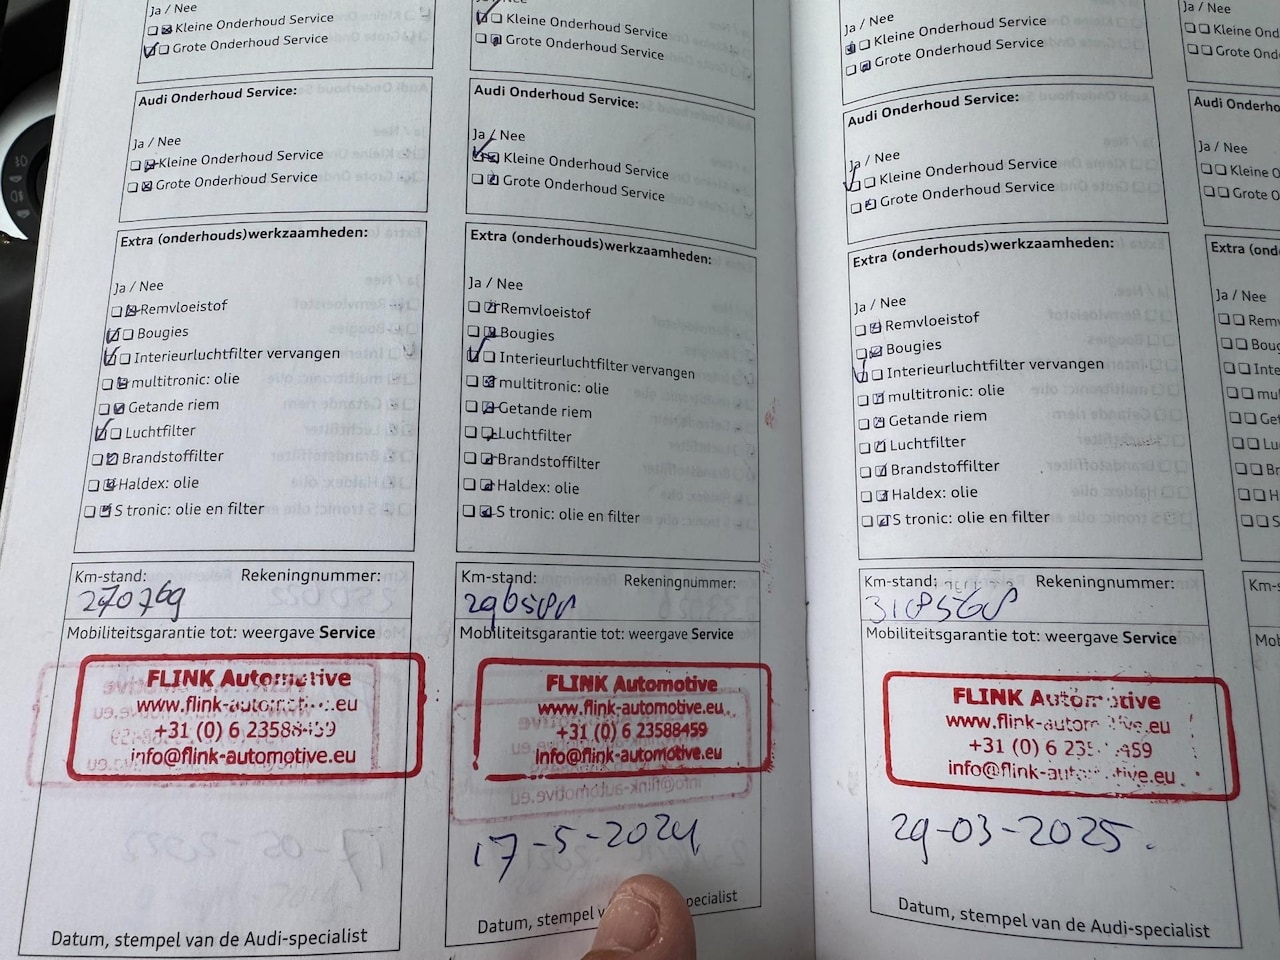 Ja / Nee
Kleine Onderhoud Service
Grote Onderhoud Service
Audi Onderhoud Service:
Ja / Nee
Kleine Onderhoud Service
Grote Onderhoud Service
Extra (onderhouds)werkzaamheden:
Ja / Nee
Remvloeistof
Bougies
Interieurluchtfilter vervangen
multitronic: olie
Getande riem
Luchtfilter
Brandstoffilter
Haldex: olie
S tronic: olie en filter
Km-stand: Rekeningnummer:
270769
Mobiliteitsgarantie tot: weergave Service
FLINK Automotive
www.flink-automotive.eu
+31 (0) 6 23588459
info@flink-automotive.eu
Datum, stempel van de Audi-specialist
Kleine Onderhoud Service
Grote Onderhoud Service
Audi Onderhoud Service:
Ja / Nee
Kleine Onderhoud Service
Grote Onderhoud Service
Extra (onderhouds)werkzaamheden:
Ja / Nee
Remvloeistof
Bougies
Interieurluchtfilter vervangen
multitronic: olie
Getande riem
Luchtfilter
Brandstoffilter
Haldex: olie
S tronic: olie en filter
Km-stand: Rekeningnummer:
Mobiliteitsgarantie tot: weergave Service
FLINK Automotive
www.flink-automotive.eu
+31 (0) 6 23588459
info@flink-automotive.eu
17-5-2024
Datum, stempel v pecialist
Ja / Nee
Kleine Onderhoud Service
Grote Onderhoud Service
Audi Onderhoud Service:
Ja / Nee
Kleine Onderhoud Service
Grote Onderhoud Service
Extra (onderhouds)werkzaamheden:
Ja / Nee
Remvloeistof
Bougies
Interieurluchtfilter vervangen
multitronic: olie
Getande riem
Luchtfilter
Brandstoffilter
Haldex: olie
S tronic: olie en filter
Km-stand: Rekeningnummer:
Mobiliteitsgarantie tot: weergave Service
FLINK Automotive
www.flink-automotive.eu
+31 (0) 6 23588459
info@flink-automotive.eu
29-03-2025.
Datum, stempel van de Audi-specialist
Ja / Nee
Kleine Ond
Grote Ond
Audi Onderho
Ja / Nee
Kleine O
Grote O
Extra (onderh
Ja / Nee
Remv
Boug
Inte
mu
Get
Lu
Br
H
S
Km-s
Mob